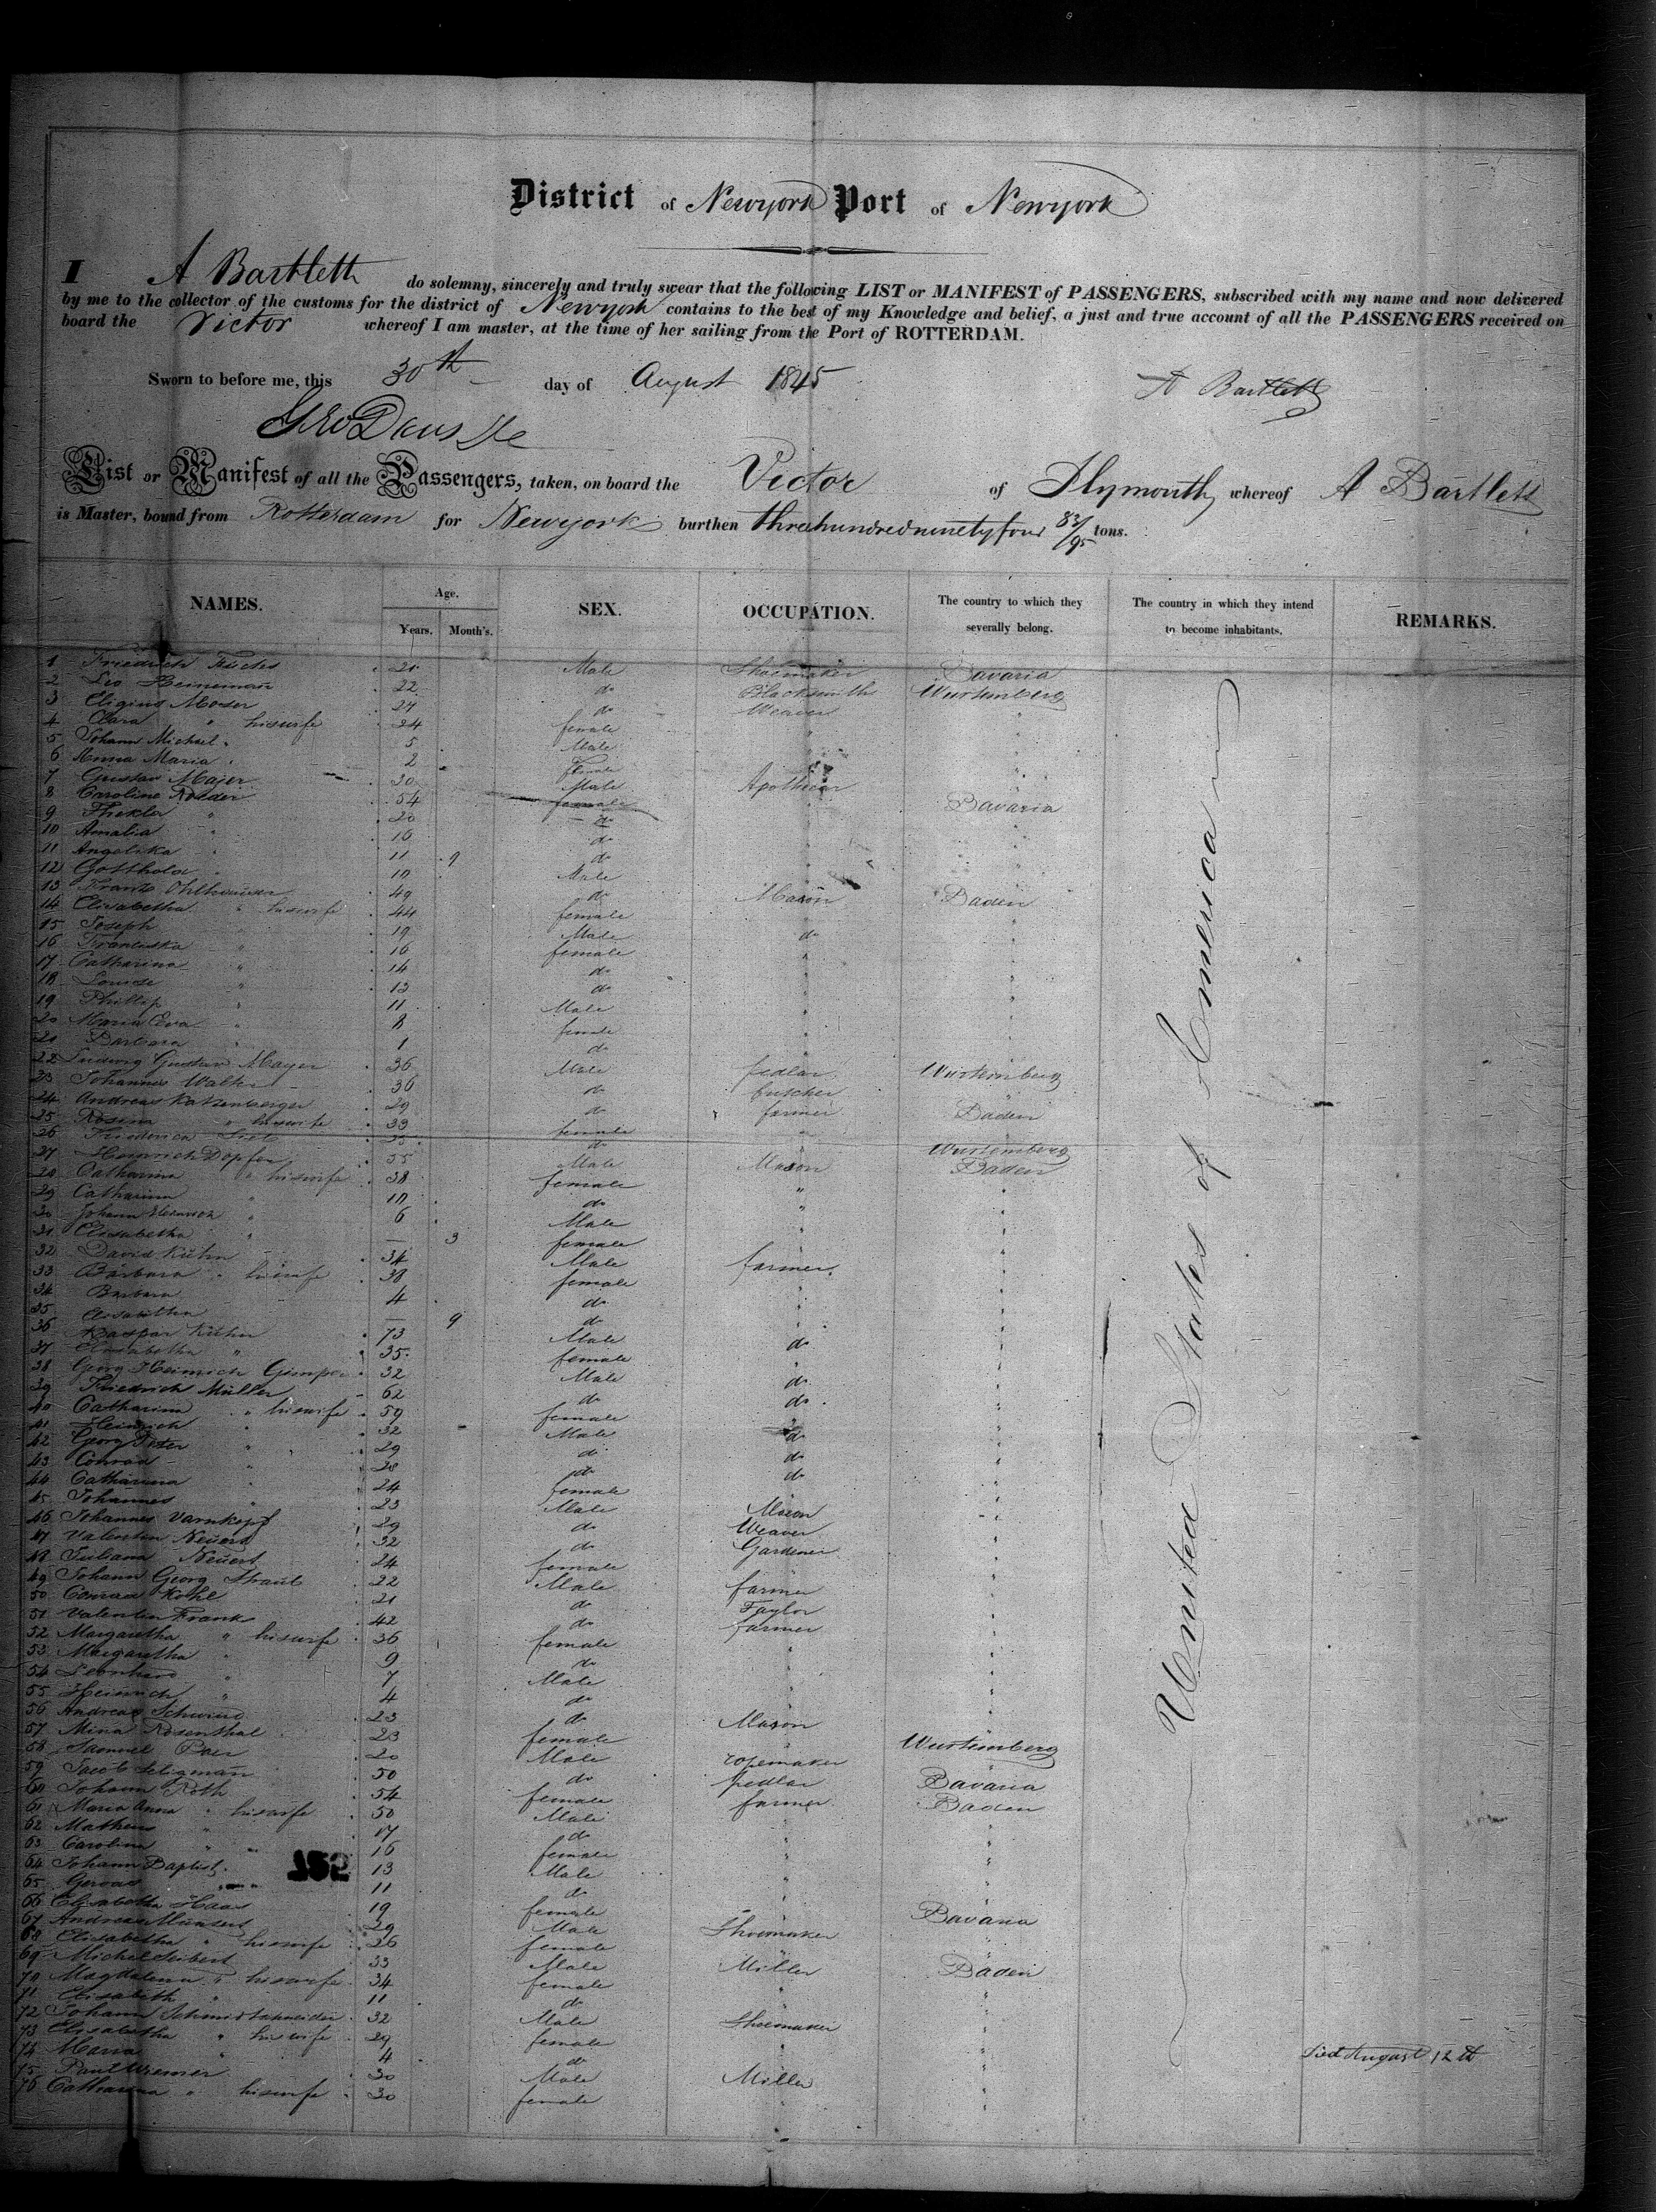 District of Newyork Port of Newyork
I A Bartlett do solemny, sincerely and truly swear that the following LIST or MANIFEST of PASSENGERS, subscribed with my name and now delivered
by me to the collector of the customs for the district of Newyork contains to the best of my Knowledge and belief, a just and true account of all the PASSENGERS received on
board the Victor whereof I am master, at the time of her sailing from the Port of ROTTERDAM.
Sworn to before me, this 30th day of August 1845 A Bartlett
List or Manifest of all the Passengers, taken, on board the Victor of Plymouth whereof A Bartlett
is Master, bound from Rotterdam for Newyork burthen threehundredninetyfour 83/95 tons.
NAMES. Age. Years. Month's. SEX. OCCUPATION. The country to which they severally belong. The country in which they intend to become inhabitants. REMARKS.
United States of America
1 Friedrich Fuchs 21 Male Shoemaker Bavaria
2 Leo Heineman 22 do Blacksmith Wurtemberg
3 Eligius Moser 24 do Weaver "
4 Clara " hiswife 24 female "
5 Johann Michael 5 Male "
6 Anna Maria 2 female "
7 Gustav Majer 30 Male "
8 Caroline Roeder 54 female Bavaria
9 Thekla " 20 do
10 Amalia " 16 do
11 Angelika " 11 9 do
12 Gotthold " 10 Male
13 Frantz 49 do Mason Baden
14 Elisabetha " hiswife 44 female "
15 Joseph " 19 Male do "
16 Franciska " 16 female "
17 Catharina " 14 do "
18 Louise " 13 do "
19 Phillip " 11 Male "
20 Maria Eva " 8 female "
21 Barbara " 1 do "
22 Ludwig Gustav Mayer 36 Male pedlar Wurtemberg
23 Johannes Walter 36 do butcher "
24 Andreas Katzenberger 29 do farmer Baden
25 Rosina " hiswife 33 female "
26 Friederica do Wurtemberg
27 Heinrich Dopfer 55 Male Mason Baden
28 Catharina " hiswife 38 female "
29 Catharina " 10 do "
30 Johann Heinrich " 6 Male "
31 Elisabetha " — 3 female "
32 David Kühn 34 Male farmer "
33 Barbara " hiswife 38 female "
34 Barbara 4 do "
35 Elisabetha — 9 do "
36 Kaspar Kühn 73 Male do "
37 Elisabetha " 35 female "
38 Georg Heinrich Gimper 32 Male do "
39 Friedrich Müller 62 do do "
40 Catharina " hiswife 59 female "
41 Heinrich " 32 Male do "
42 Georg Peter " 29 do do "
43 Conrad " 28 do do "
44 Catharina " 24 female "
45 Johannes " 23 Male Mason "
46 Johannes Varnkopf 29 do Weaver "
47 Valentin Neuert 32 do Gardener "
48 Juliana Neuert 24 female "
49 Johann Georg Straub 22 Male farmer "
50 Conrad Kohl 21 do Taylor "
51 Valentin Frank 42 do farmer "
52 Margaretha " hiswife 36 female "
53 Margaretha " 9 do "
54 Leonhard " 7 Male "
55 Heinrich " 4 do "
56 Andreas Schwind 23 do Mason "
57 Mina Rosenthal 23 female Wurtemberg
58 Samuel 20 Male ropemaker
59 Jacob Seligman 50 do pedlar Bavaria
60 Johann Roth 54 farmer Baden
61 Maria Anna " hiswife 50 female "
62 Matheus " 17 Male "
63 Carolina " 16 female "
64 Johann Baptist 13 Male "
65 Gervas " 11 do "
152
66 Elisabetha Haas 19 female Bavaria
67 Andreas 29 Male Shoemaker "
68 Elisabetha " hiswife 26 female "
69 Michel Seibert 33 Male Miller Baden
70 Magdalena " hiswife 34 female "
71 Elisabeth " 11 do "
72 Johann 32 Male Shoemaker "
73 Elisabetha " his wife 29 female "
74 Maria " 4 do " Died August 12th
75 Paul 30 Male Miller "
76 Catharina " hiswife 30 female "